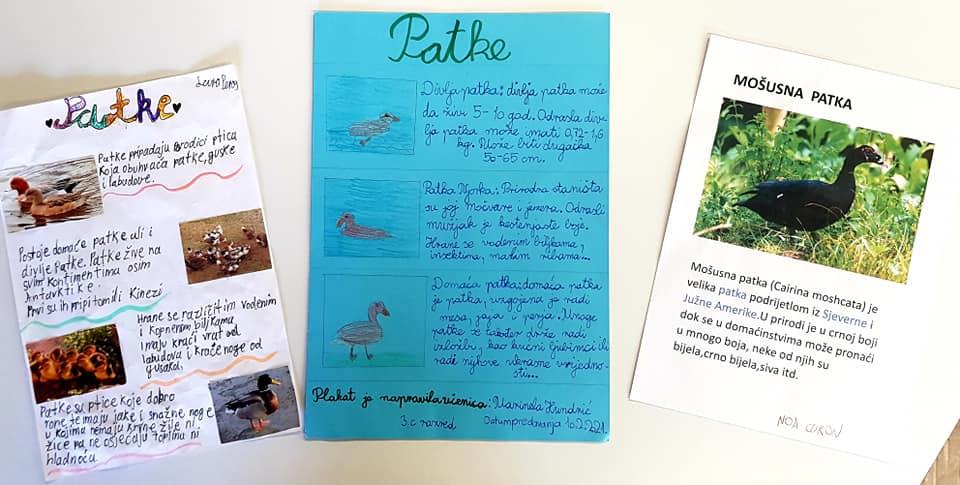 Patke
Patke pripadaju porodici ptica
koja obuhvaća patke, guske
i labudove.
Postoje domaće patke ali i
divlje patke. Patke žive na
svim kontinentima osim
Antarktike.
Prvi su ih pripitomili Kinezi
Hrane se različitim vodenim
i kopnenim biljkama
Imaju kraći vrat od
labudova i kraće noge od
gusaka.
Patke su ptice koje dobro
rone, te imaju jake i snažne noge
u kojima nemaju krvne žile ni
žice pa ne osjećaju toplinu ni
hladnoću.
Patke
Divlja patka: divlja patka može
da živi 5-10 god. Odrasla div
lja patka može imati 0,72-1,6
kg. Može biti dugačka
50-65 cm.
Patka Njorka: Prirodna staništa
su joj močvare i jezera. Odrasli
mužjak je kestenjaste boje.
Hrane se vodenim biljkama,
insektima, malim ribama...
Domaća patka: domaća patka
je patka, uzgojena je radi
mesa, jaja i perja. Mnoge
patke se također drže radi
izložbi, kao kućni ljubimci ili
radi njihove ukrasne vrijedno-
sti...
Plakat je napravila učenica: Marinela Hundrić
3.c razred Datum predavanja 10.2.2021.
MOŠUSNA PATKA
Mošusna patka (Cairina moshcata) je
velika patka podrijetlom iz Sjeverne i
Južne Amerike.U prirodi je u crnoj boji
dok se u domaćinstvima može pronaći
u mnogo boja, neke od njih su
bijela,crno bijela,siva itd.
NOA